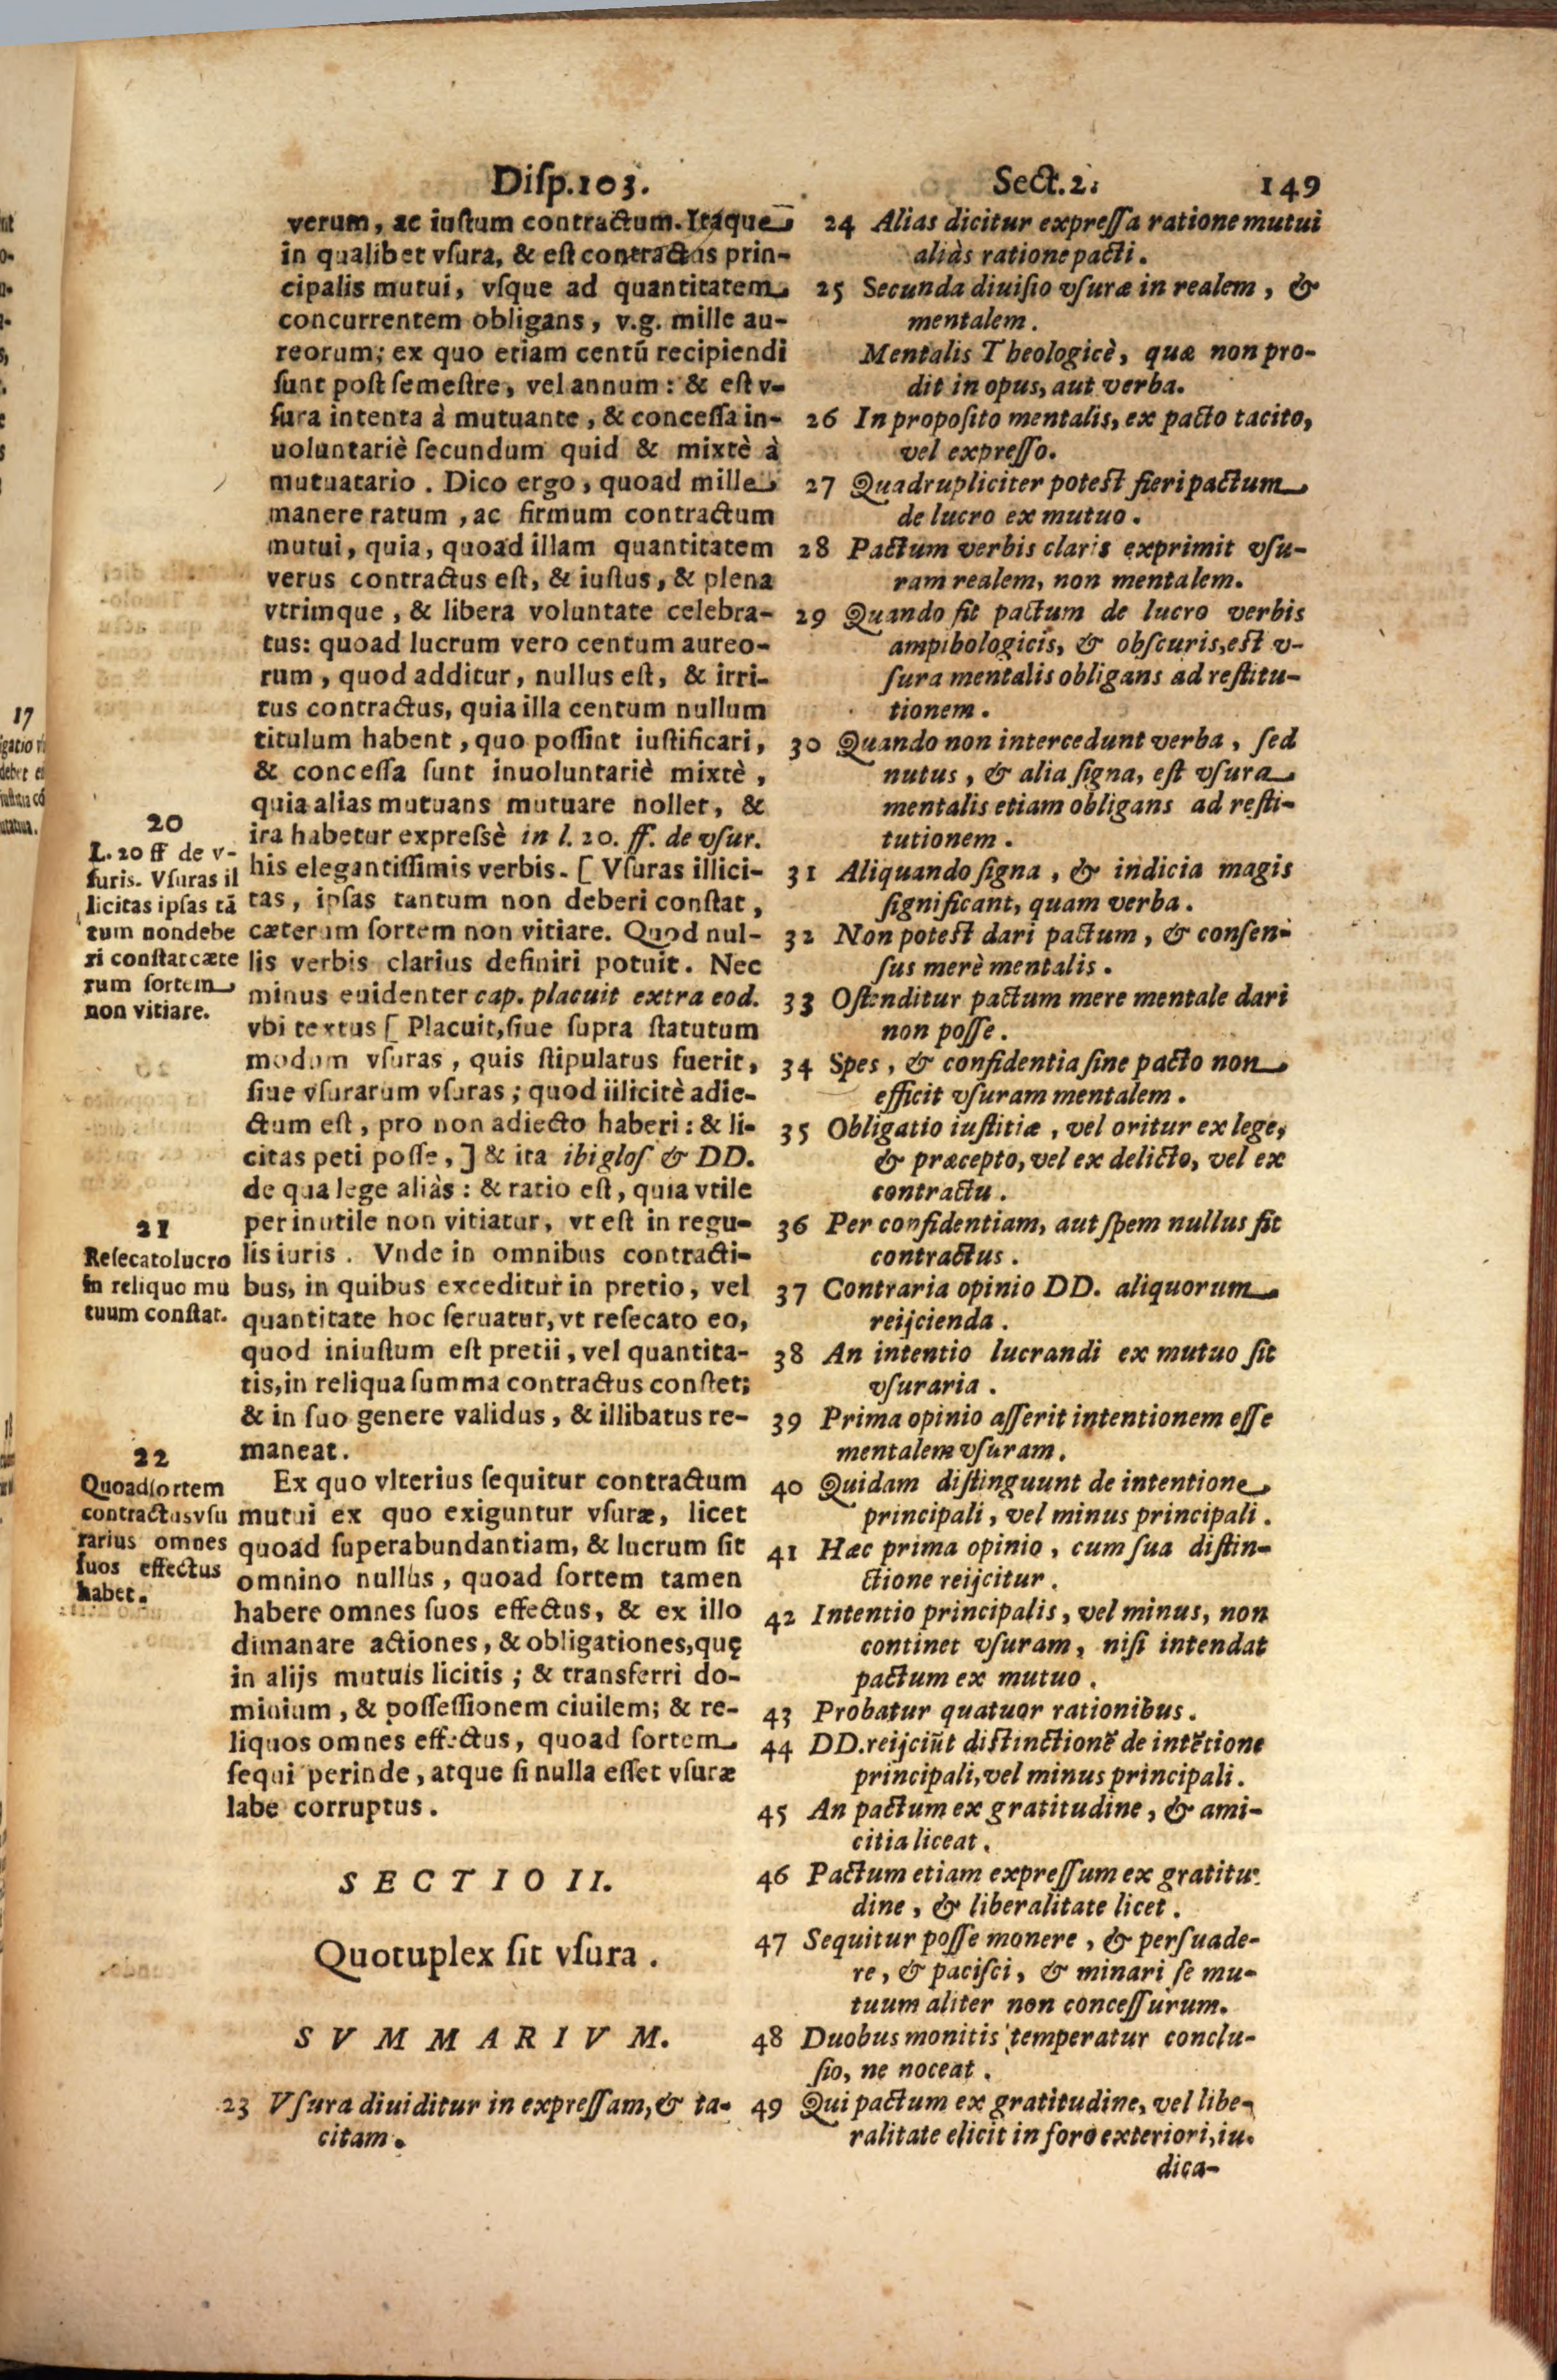 Diſp.103.
Sect.2.
149
verum, ac iuſtum contractum. Itaque
in qualibet vſura, & eſt contractus prin-
cipalis mutui, vſque ad quantitatem
concurrentem obligans, v.g. mille au-
reorum; ex quo etiam centū recipiendi
ſunt poſt ſemeſtre, vel annum: & eſt v-
ſura intenta à mutuante, & conceſſa in-
uoluntariè ſecundum quid & mixtè à
mutuatario. Dico ergo, quoad mille
manere ratum, ac firmum contractum
mutui, quia, quoad illam quantitatem
verus contractus eſt, & iuſtus, & plena
vtrimque, & libera voluntate celebra-
tus: quoad lucrum vero centum aureo-
rum, quod additur, nullus eſt, & irri-
tus contractus, quia illa centum nullum
titulum habent, quo poſſint iuſtificari,
& conceſſa ſunt inuoluntariè mixtè,
quia alias mutuans mutuare nollet, &
ita habetur expreſsè in l. 20. ff. de vſur.
his elegantiſſimis verbis. [ Vſuras illici-
tas, ipſas tantum non deberi conſtat,
cæterum ſortem non vitiare. Quod nul-
lis verbis clarius definiri potuit. Nec
minus euidenter cap. placuit extra eod.
vbi textus [ Placuit, ſiue ſupra ſtatutum
modum vſuras, quis ſtipulatus fuerit,
ſiue vſurarum vſuras; quod illicitè adie-
ctum eſt, pro non adiecto haberi: & li-
citas peti poſſe, ] & ita ibi gloſ & DD.
de qua lege aliàs: & ratio eſt, quia vtile
per inutile non vitiatur, vt eſt in regu-
lis iuris. Vnde in omnibus contracti-
bus, in quibus exceditur in pretio, vel
quantitate hoc ſeruatur, vt reſecato eo,
quod iniuſtum eſt pretii, vel quantita-
tis, in reliqua ſumma contractus conſtet;
& in ſuo genere validus, & illibatus re-
maneat.
Ex quo vlterius ſequitur contractum
mutui ex quo exiguntur vſuræ, licet
quoad ſuperabundantiam, & lucrum ſit
omnino nullus, quoad ſortem tamen
habere omnes ſuos effectus, & ex illo
dimanare actiones, & obligationes, quę
in alijs mutuis licitis; & transferri do-
minium, & poſſeſſionem ciuilem; & re-
liquos omnes effectus, quoad ſortem
ſequi perinde, atque ſi nulla eſſet vſuræ
labe corruptus.
20
L. 20 ff de v-
ſuris. Vſuras il
licitas ipſas tā
tum non debe
ri conſtat cæte
rum ſortem
non vitiare.
21
Reſecato lucro
in reliquo mu
tuum conſtat.
22
Quoad ſortem
contractus vſu
rarius omnes
ſuos effectus
habet.
SECTIO II.
Quotuplex ſit vſura.
SVMMARIVM.
23 Vſura diuiditur in expreſſam, & ta-
citam.
24 Alias dicitur expreſſa ratione mutui
aliàs ratione pacti.
25 Secunda diuiſio vſuræ in realem, &
mentalem.
Mentalis Theologicè, quæ non pro-
dit in opus, aut verba.
26 In propoſito mentalis, ex pacto tacito,
vel expreſſo.
27 Quadrupliciter poteſt fieri pactum
de lucro ex mutuo.
28 Pactum verbis claris exprimit vſu-
ram realem, non mentalem.
29 Quando fit pactum de lucro verbis
ampibologicis, & obſcuris, eſt v-
ſura mentalis obligans ad reſtitu-
tionem.
30 Quando non intercedunt verba, ſed
nutus, & alia ſigna, eſt vſura
mentalis etiam obligans ad reſti-
tutionem.
31 Aliquando ſigna, & indicia magis
ſignificant, quam verba.
32 Non poteſt dari pactum, & conſen-
ſus merè mentalis.
33 Oſtenditur pactum mere mentale dari
non poſſe.
34 Spes, & confidentia ſine pacto non
efficit vſuram mentalem.
35 Obligatio iuſtitiæ, vel oritur ex lege,
& præcepto, vel ex delicto, vel ex
contractu.
36 Per confidentiam, aut ſpem nullus fit
contractus.
37 Contraria opinio DD. aliquorum
reijcienda.
38 An intentio lucrandi ex mutuo ſit
vſuraria.
39 Prima opinio aſſerit intentionem eſſe
mentalem vſuram.
40 Quidam diſtinguunt de intentione
principali, vel minus principali.
41 Hæc prima opinio, cum ſua diſtin-
ctione reijcitur.
42 Intentio principalis, vel minus, non
continet vſuram, niſi intendat
pactum ex mutuo.
43 Probatur quatuor rationibus.
44 DD. reijciūt diſtinctionē de intētione
principali, vel minus principali.
45 An pactum ex gratitudine, & ami-
citia liceat.
46 Pactum etiam expreſſum ex gratitu-
dine, & liberalitate licet.
47 Sequitur poſſe monere, & perſuade-
re, & paciſci, & minari ſe mu-
tuum aliter non conceſſurum.
48 Duobus monitis temperatur conclu-
ſio, ne noceat.
49 Qui pactum ex gratitudine, vel libe-
ralitate elicit in foro exteriori, iu-
dica-